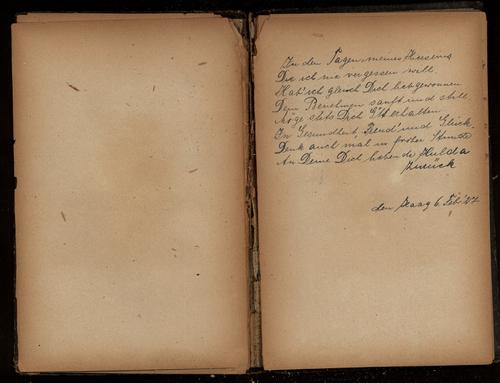 In den Tagen meines Hierseins
Die ich nie vergessen will,
Hab' ich gleich Dich liebgewonnen
Dein Benehmen sanft und still.
Möge stets Dich G'tt erhalten
In Gesundheit, Freud' und Glück,
Denk auch mal in froher Stunde
An Deine Dich liebende Hulda
zurück
den Haag 6. Feb. '27